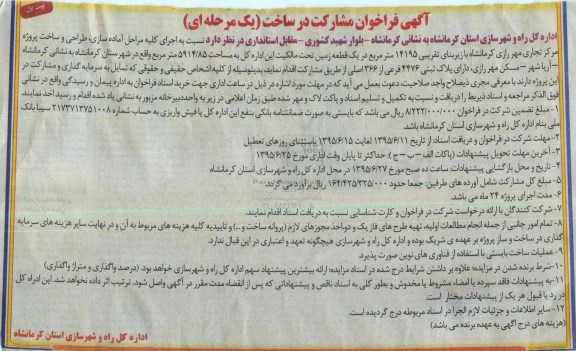 نوبت اول
آگهی فراخوان مشارکت در ساخت (یک مرحله ای)
اداره کل راه و شهرسازی استان کرمانشاه به نشانی کرمانشاه – بلوار شهید کشوری – مقابل استانداری در نظر دارد نسبت به اجرای کلیه مراحل آماده سازی، طراحی و ساخت پروژه
مرکز تجاری مهر رازی کرمانشاه با زیربنای تقریبی ۱۴۱۹۵ متر مربع در یک قطعه زمین تحت مالکیت این اداره کل به مساحت ۵۹۱۴/۸۵ متر مربع واقع در شهرستان کرمانشاه به نشانی کرمانشاه
– آریا شهر – مسکن مهر رازی، دارای پلاک ثبتی ۴۴۷۶ فرعی از ۳۶۶ اصلی از طریق مشارکت اقدام نماید، بدینوسیله از کلیه اشخاص حقیقی و حقوقی که تمایل به سرمایه گذاری و مشارکت در
این پروژه دارند با معرفی مجری ذیصلاح واجد صلاحیت، دعوت بعمل می آید که در مهلت مورد اشاره در ذیل در ساعات اداری جهت خرید اسناد فراخوان به اداره پیمان و رسیدگی واقع در نشانی
فوق الذکر مراجعه و اسناد ذیربط را دریافت و نسبت به تکمیل و تسلیم اسناد و پاکت لاک و مهر شده طبق زمان اعلامی در زیر به واحد دبیرخانه مزبور به نشانی یاد شده اقدام و رسید اخذ نمایند.
۱- مبلغ تضمین شرکت در فراخوان ۸/۲۲۲/۰۰۰/۰۰۰ ریال می باشد که بایستی به صورت ضمانتنامه بانکی بنفع این اداره کل یا فیش واریزی به حساب شماره ۲۱۷۳۷۱۳۷۵۱۰۰۸ سیبا بانک
ملی بنام اداره کل راه و شهرسازی استان کرمانشاه باشد
۲- مهلت شرکت در فراخوان و دریافت اسناد: از تاریخ ۱۳۹۵/۶/۱۱ لغایت ۱۳۹۵/۶/۱۵ باستثنای روزهای تعطیل
۳- آخرین مهلت تحویل پیشنهادات (پاکات الف – ب – ج): حداکثر تا پایان وقت اداری مورخ ۱۳۹۵/۶/۲۵
۴- تاریخ و محل بازگشایی پیشنهادات: ساعت ده صبح مورخ ۱۳۹۵/۶/۲۷ در محل اداره کل راه و شهرسازی استان کرمانشاه
۵- مبلغ کل مشارکت شامل آورده های طرفین: جمعا حدود ۱۶۴/۴۲۵/۳۲۵/۰۰۰ ریال برآورد می گردد.
۶- مدت اجرای پروژه ۲۴ ماه می باشد.
۷- شرکت کنندگان با ارائه درخواست شرکت در فراخوان و کارت شناسایی نسبت به دریافت اسناد اقدام نمایند.
۸- تمام امور جانبی از جمله انجام مطالعات اولیه، تهیه طرح های فاز یک و دو، اخذ مجوزهای لازم (پروانه ساخت و ...) و تاییدیه کلیه هزینه های مربوط به آن و در نهایت سایر هزینه های سرمایه
گذاری در ساخت و ساز پروژه بر عهده ی شریک بوده و اداره کل راه و شهرسازی هیچگونه تعهد و اعتباری در این قبال ندارد.
۹- عملیات ساخت بایستی با استفاده از فناوری های نوین صورت پذیرد.
۱۰- شرط برنده شدن در مزایده: علاوه بر داشتن شرایط درج شده در اسناد مزایده؛ ارائه بیشترین پیشنهاد سهم اداره کل راه و شهرسازی خواهد بود. (درصد واگذاری و متراژ واگذاری)
۱۱- به پیشنهادات فاقد سپرده یا امضاء مشروط یا مخدوش و بطور کلی به اسناد ناقص و پیشنهاداتی که پس از انقضاء مدت مقرر در آگهی واصل شود، ترتیب اثر داده نخواهد شد. این اداره کل
در رد یا قبول هر یک از پیشنهادات مختار است.
۱۲- سایر اطلاعات و جزئیات لازم الاجرا در اسناد مربوطه درج گردیده است.
(هزینه های درج آگهی به عهده برنده می باشد)
اداره کل راه و شهرسازی استان کرمانشاه